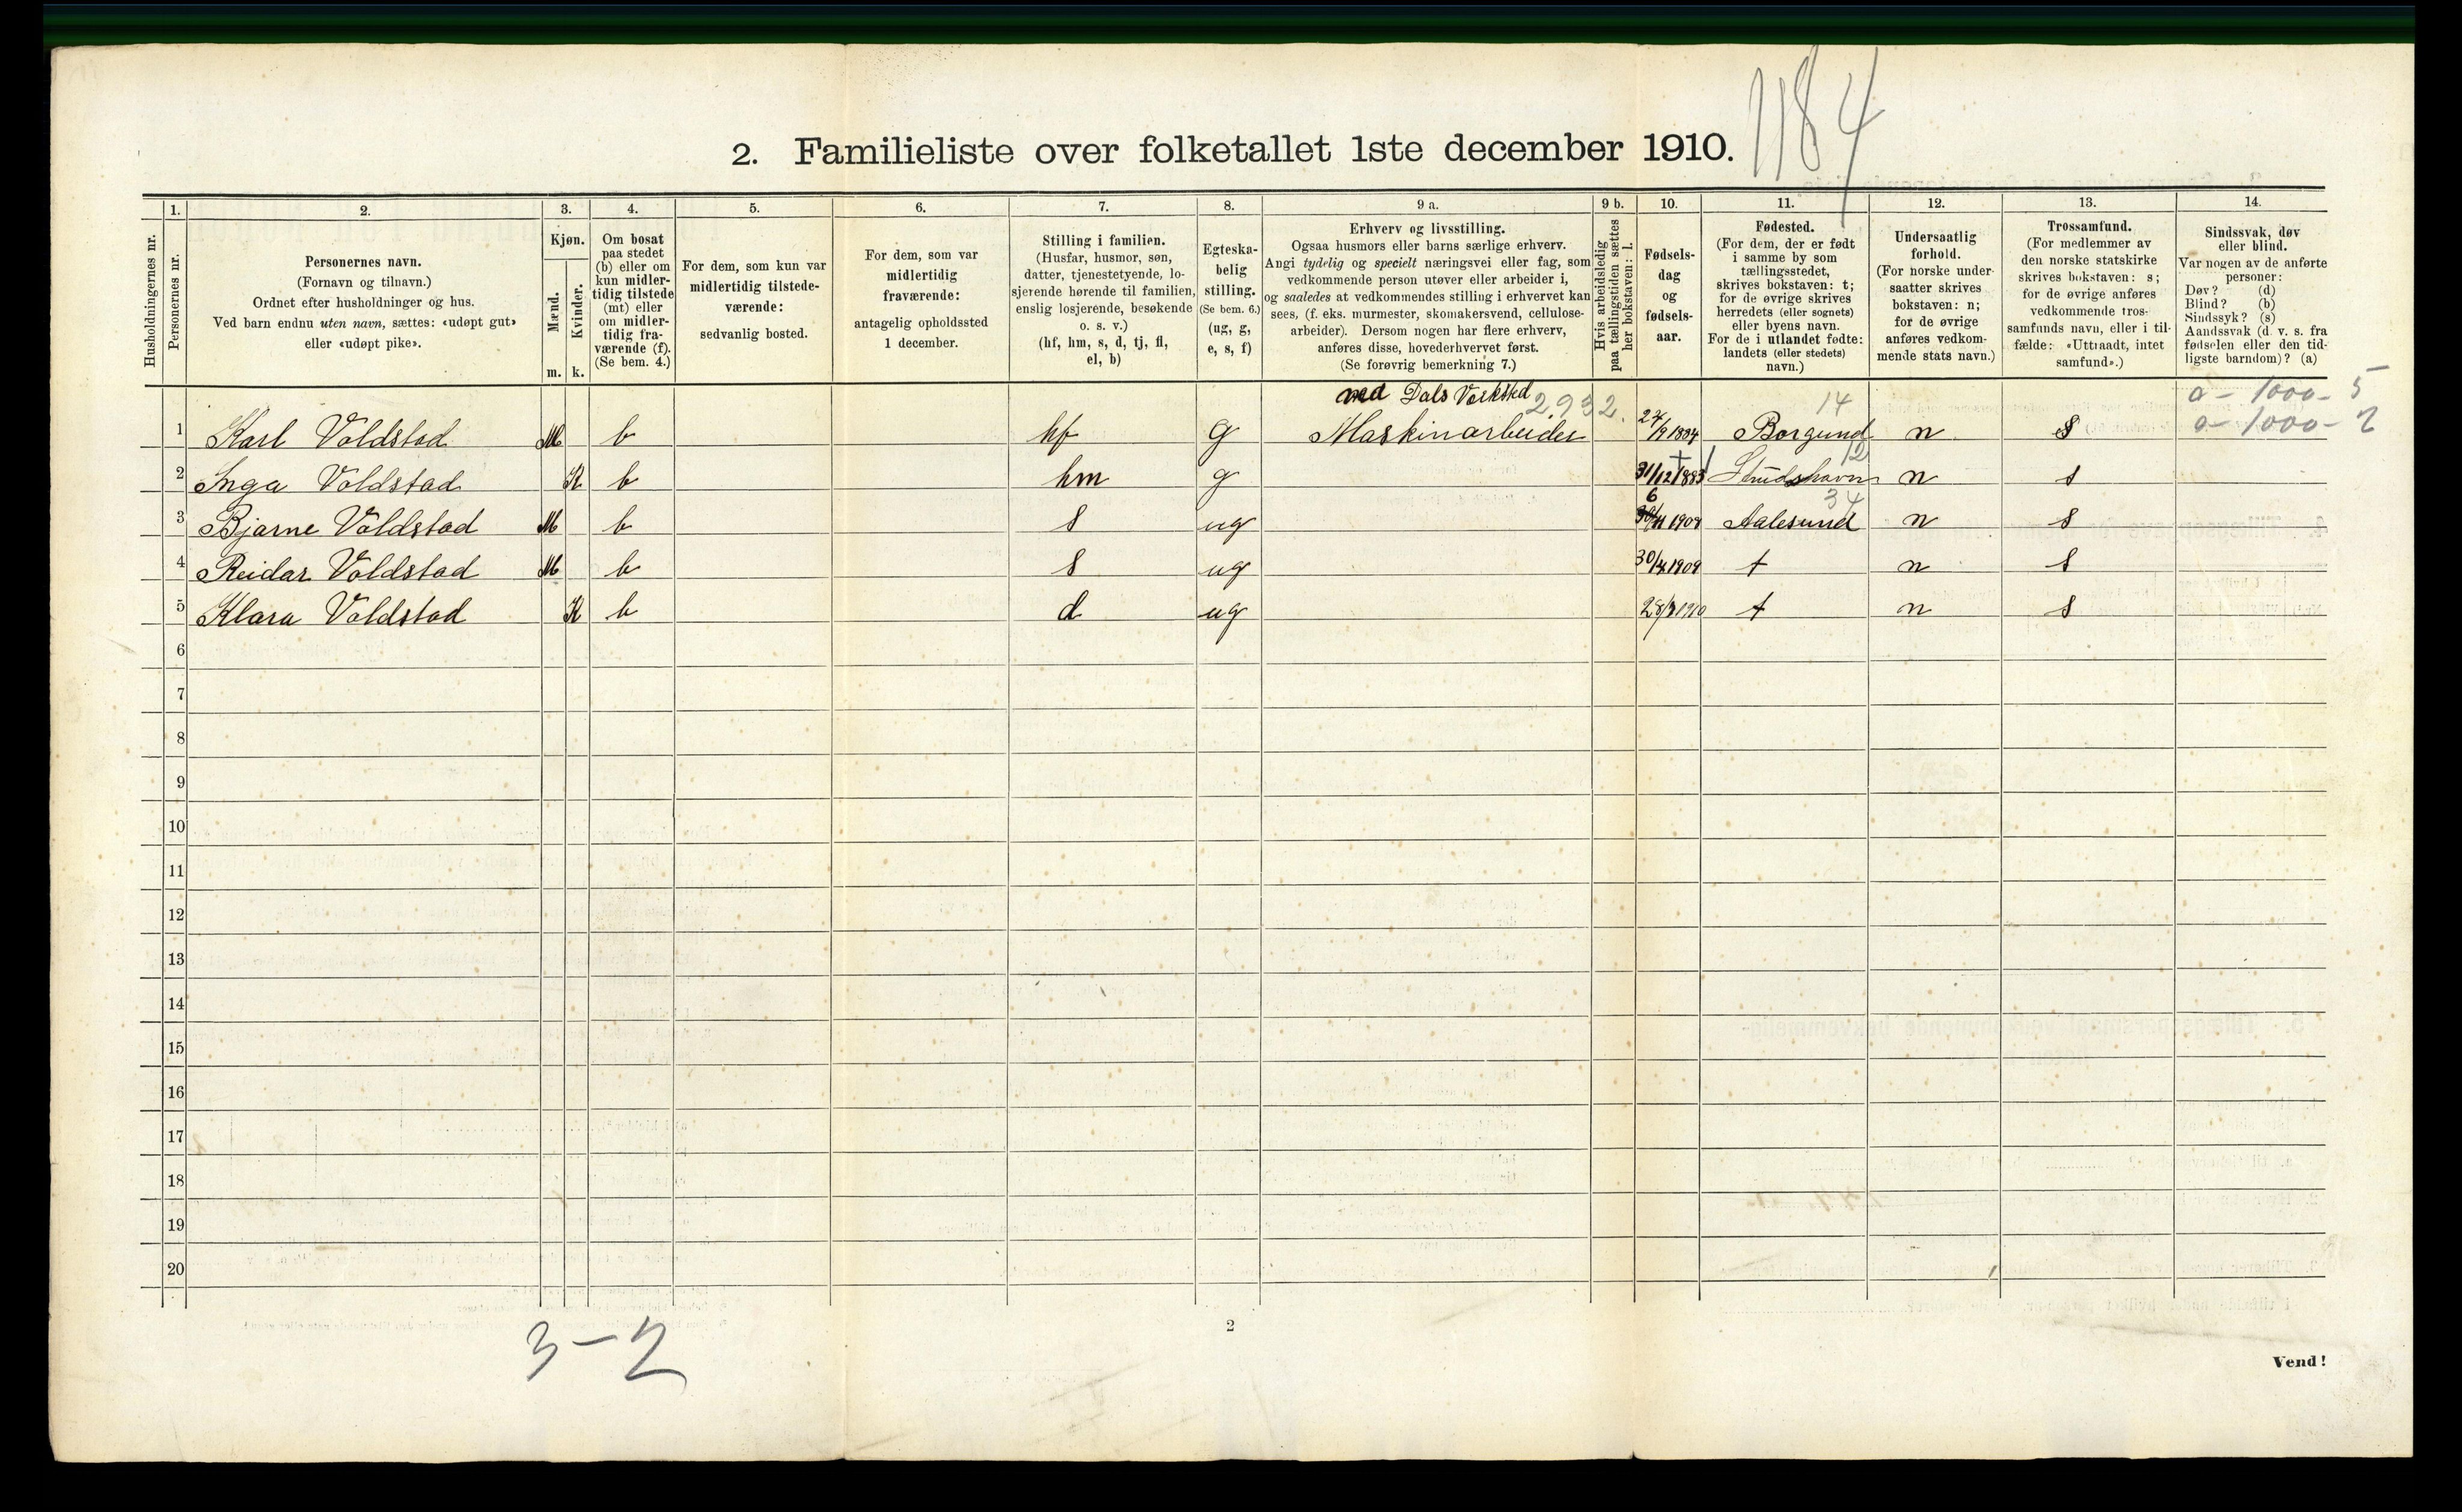 1184
2. Familieliste over folketallet 1ste december 1910.
Husholdningernes nr.
1.
Personernes nr.
2.
Personernes navn.
(Fornavn og tilnavn.)
Ordnet efter husholdninger og hus.
Ved barn endnu uten navn, sættes: «udøpt gut»
eller «udøpt pike».
3.
Kjøn.
Mænd.
Kvinder.
m. k.
4.
Om bosat
paa stedet
(b) eller om
kun midler-
tidig tilstede
(mt) eller
om midler-
tidig fra-
værende (f).
(Se bem. 4.)
5.
For dem, som kun var
midlertidig tilstede-
værende:
sedvanlig bosted.
6.
For dem, som var
midlertidig
fraværende:
antagelig opholdssted
1 december.
7.
Stilling i familien.
(Husfar, husmor, søn,
datter, tjenestetyende, lo-
sjerende hørende til familien,
enslig losjerende, besøkende
o. s. v.)
(hf, hm, s, d, tj, fl,
el, b)
8.
Egteska-
belig
stilling.
(Se bem. 6.)
(ug, g,
e, s, f)
9 a.
Erhverv og livsstilling.
Ogsaa husmors eller barns særlige erhverv.
Angi tydelig og specielt næringsvei eller fag, som
vedkommende person utøver eller arbeider i,
og saaledes at vedkommendes stilling i erhvervet kan
sees, (f. eks. murmester, skomakersvend, cellulose-
arbeider). Dersom nogen har flere erhverv,
anføres disse, hovederhvervet først.
(Se forøvrig bemerkning 7.)
9 b.
Hvis arbeidsledig
paa tællingstiden sættes
her bokstaven: l.
10.
Fødsels-
dag
og
fødsels-
aar.
11.
Fødested.
(For dem, der er født
i samme by som
tællingsstedet,
skrives bokstaven: t;
for de øvrige skrives
herredets (eller sognets)
eller byens navn.
For de i utlandet fødte:
landets (eller stedets)
navn.)
12.
Undersaatlig
forhold.
(For norske under-
saatter skrives
bokstaven: n;
for de øvrige
anføres vedkom-
mende stats navn.)
13.
Trossamfund.
(For medlemmer av
den norske statskirke
skrives bokstaven: s;
for de øvrige anføres
vedkommende tros-
samfunds navn, eller i til-
fælde: «Uttraadt, intet
samfund».)
14.
Sindssvak, døv
eller blind.
Var nogen av de anførte
personer:
Døv? (d)
Blind? (b)
Sindssyk? (s)
Aandssvak (d. v. s. fra
fødselen eller den tid-
ligste barndom)? (a)
ved Dals Verksted 2932. 14 0 - 1000 - 5
1 Karl Voldstad M b hf g Maskinarbeider 24/9 1884 Borgund n s 0 - 1000 - 2
12
2 Inga Voldstad K b hm g 31/12 1883 n s
6 34
3 Bjarne Voldstad M b s ug Aalesund n s
4 Reidar Voldstad M b s ug 30/4 1909 t n s
5 Klara Voldstad K b d ug t n s
6
7
8
9
10
11
12
13
14
15
16
17
18
19
20
3 - 2
2
Vend!